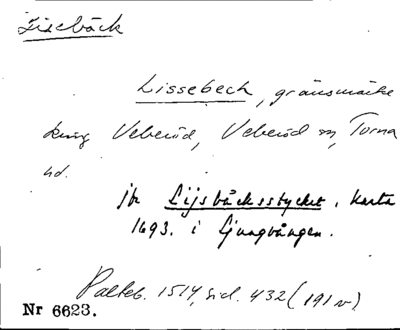 Lisebäck
Lissebech, gränsmärke
kring Veberöd, Veberöd sn, Torna
hd.
jfr Lijsbäcksstycket, karta
1693. i Ljungvången.
Palteb. 1514, sid. 432 (191 v)
Nr 6623.